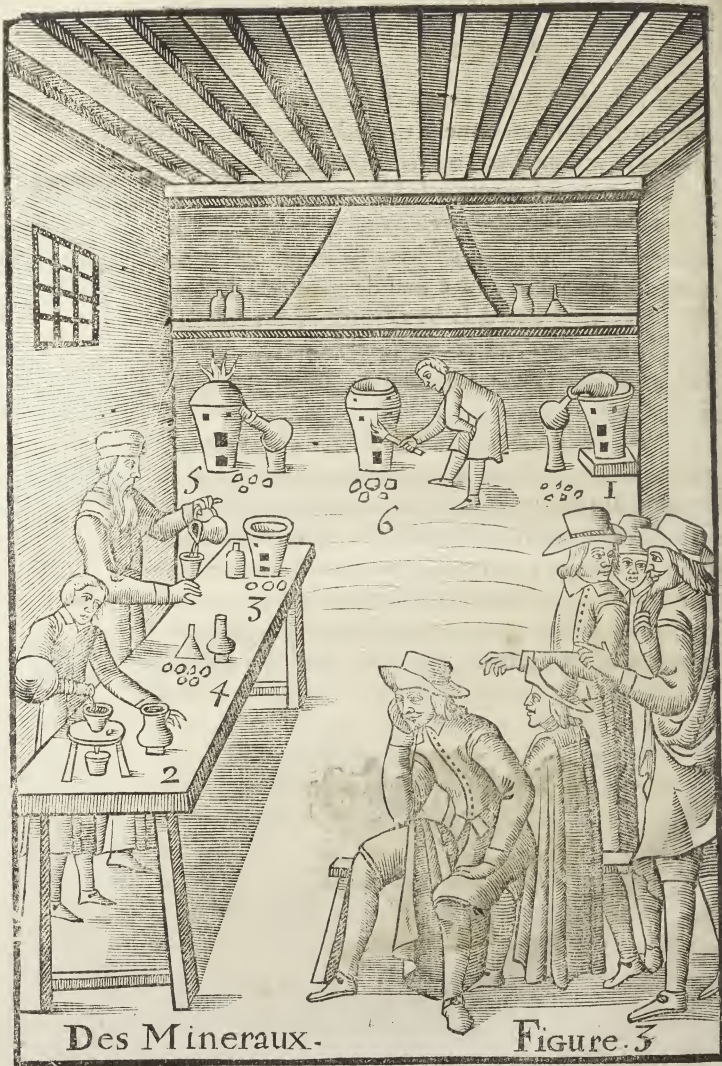 5
1
6
3
4
2
Des Mineraux. Figure. 3